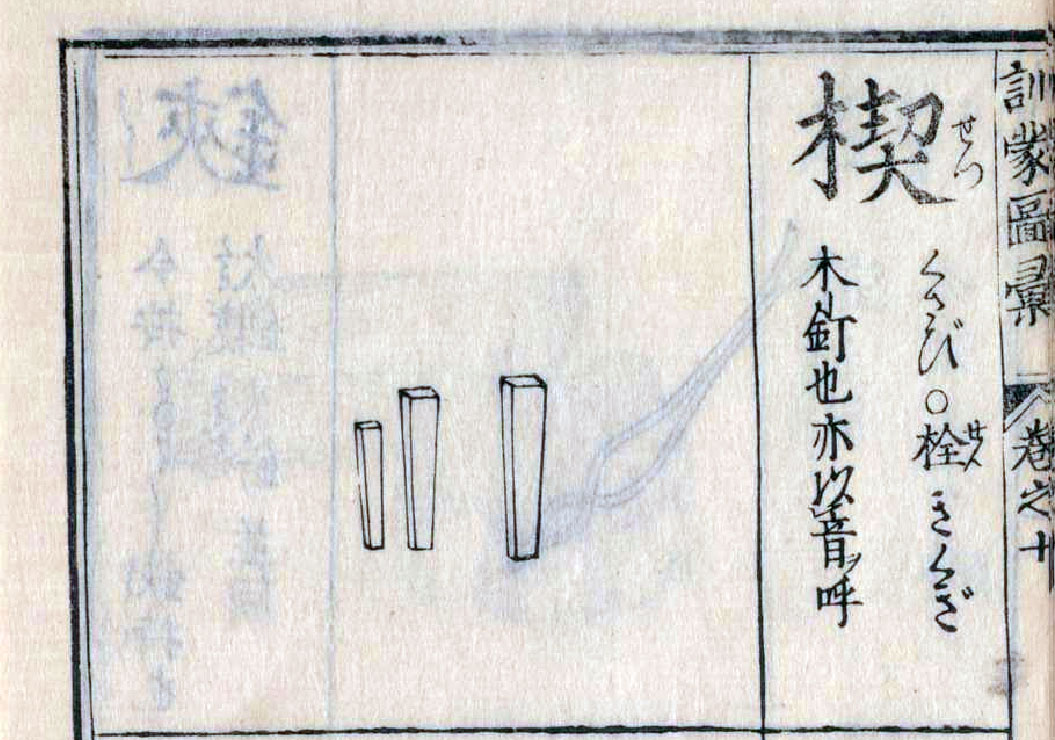 訓蒙圖彙 巻之十
楔 せつ
くさび○栓 せん きくぎ
木ノ釘也亦以音ヲ呼